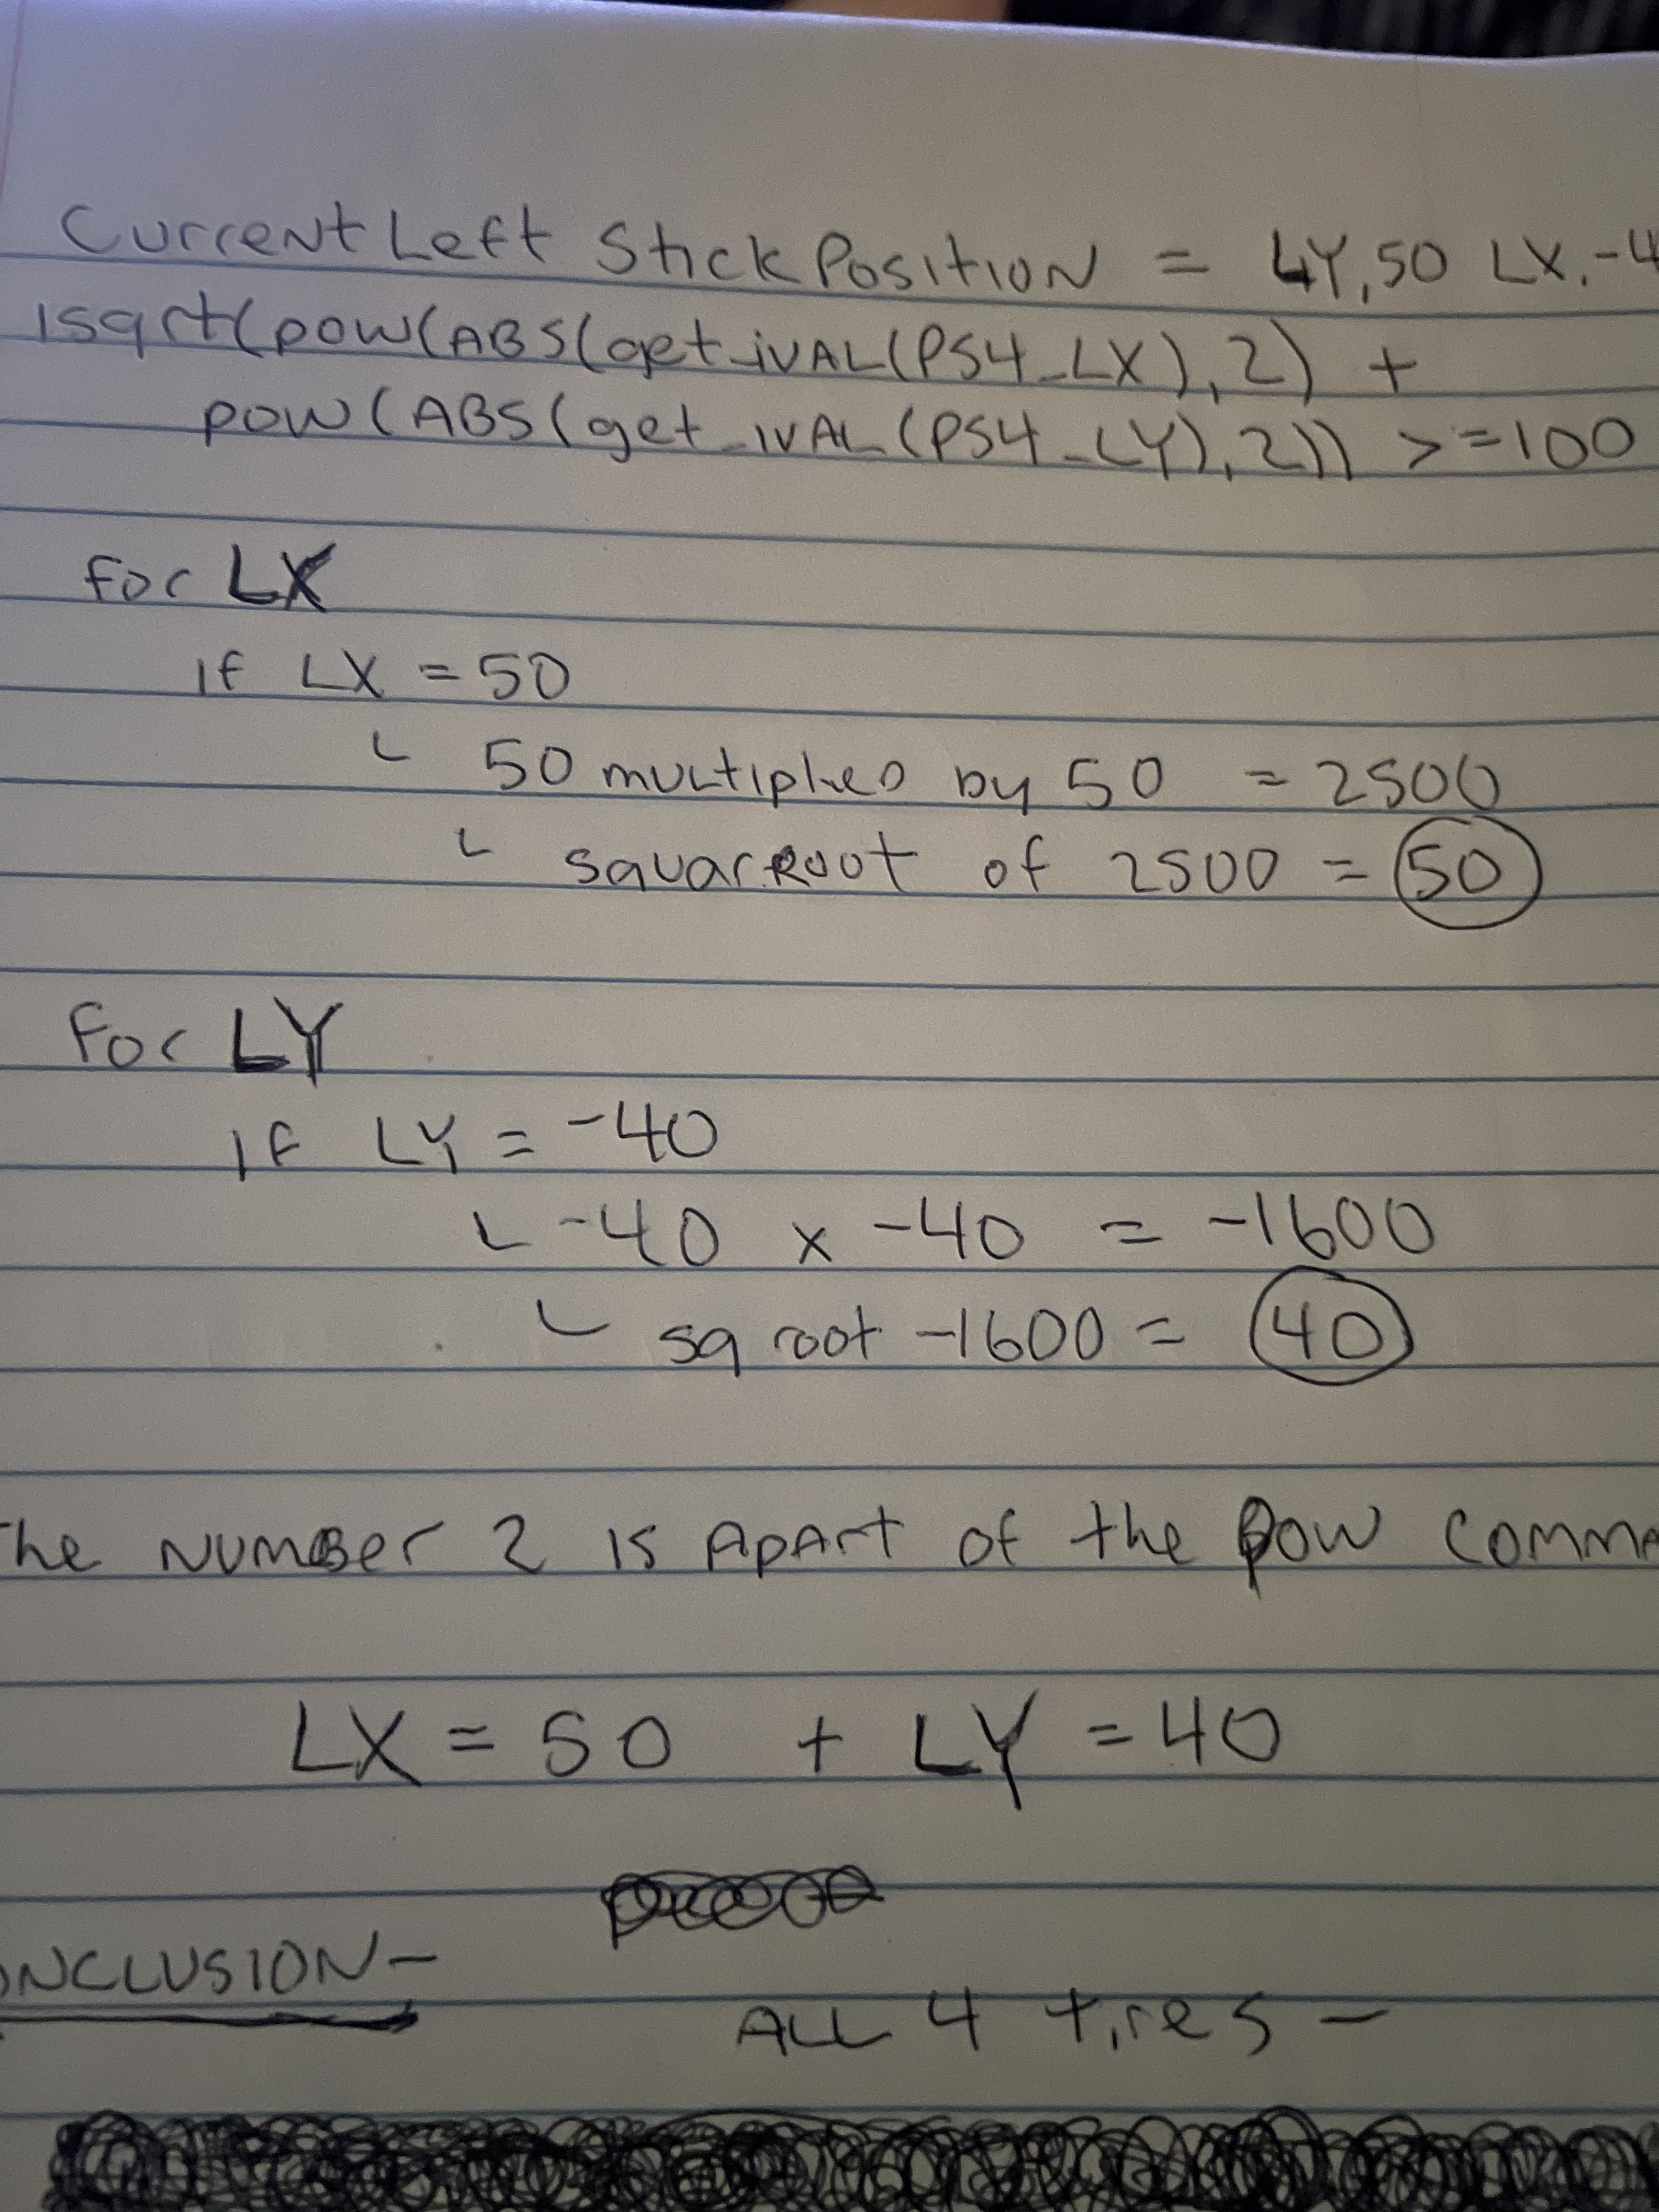 Current Left Stick Position = LY, 50 LX, -4
isqrt(pow(ABS(get_ival(PS4_LX), 2) +
pow(ABS(get_ival(PS4_LY), 2)) >= 100
For LX
if LX = 50
50 multiplied by 50 = 2500
squareRoot of 2500 = 50
For LY
if LY = -40
-40 x -40 = -1600
sq root -1600 = 40
The Number 2 is Apart of the pow comma
LX = 50 + LY = 40
ONCLUSION-
ALL 4 tires -